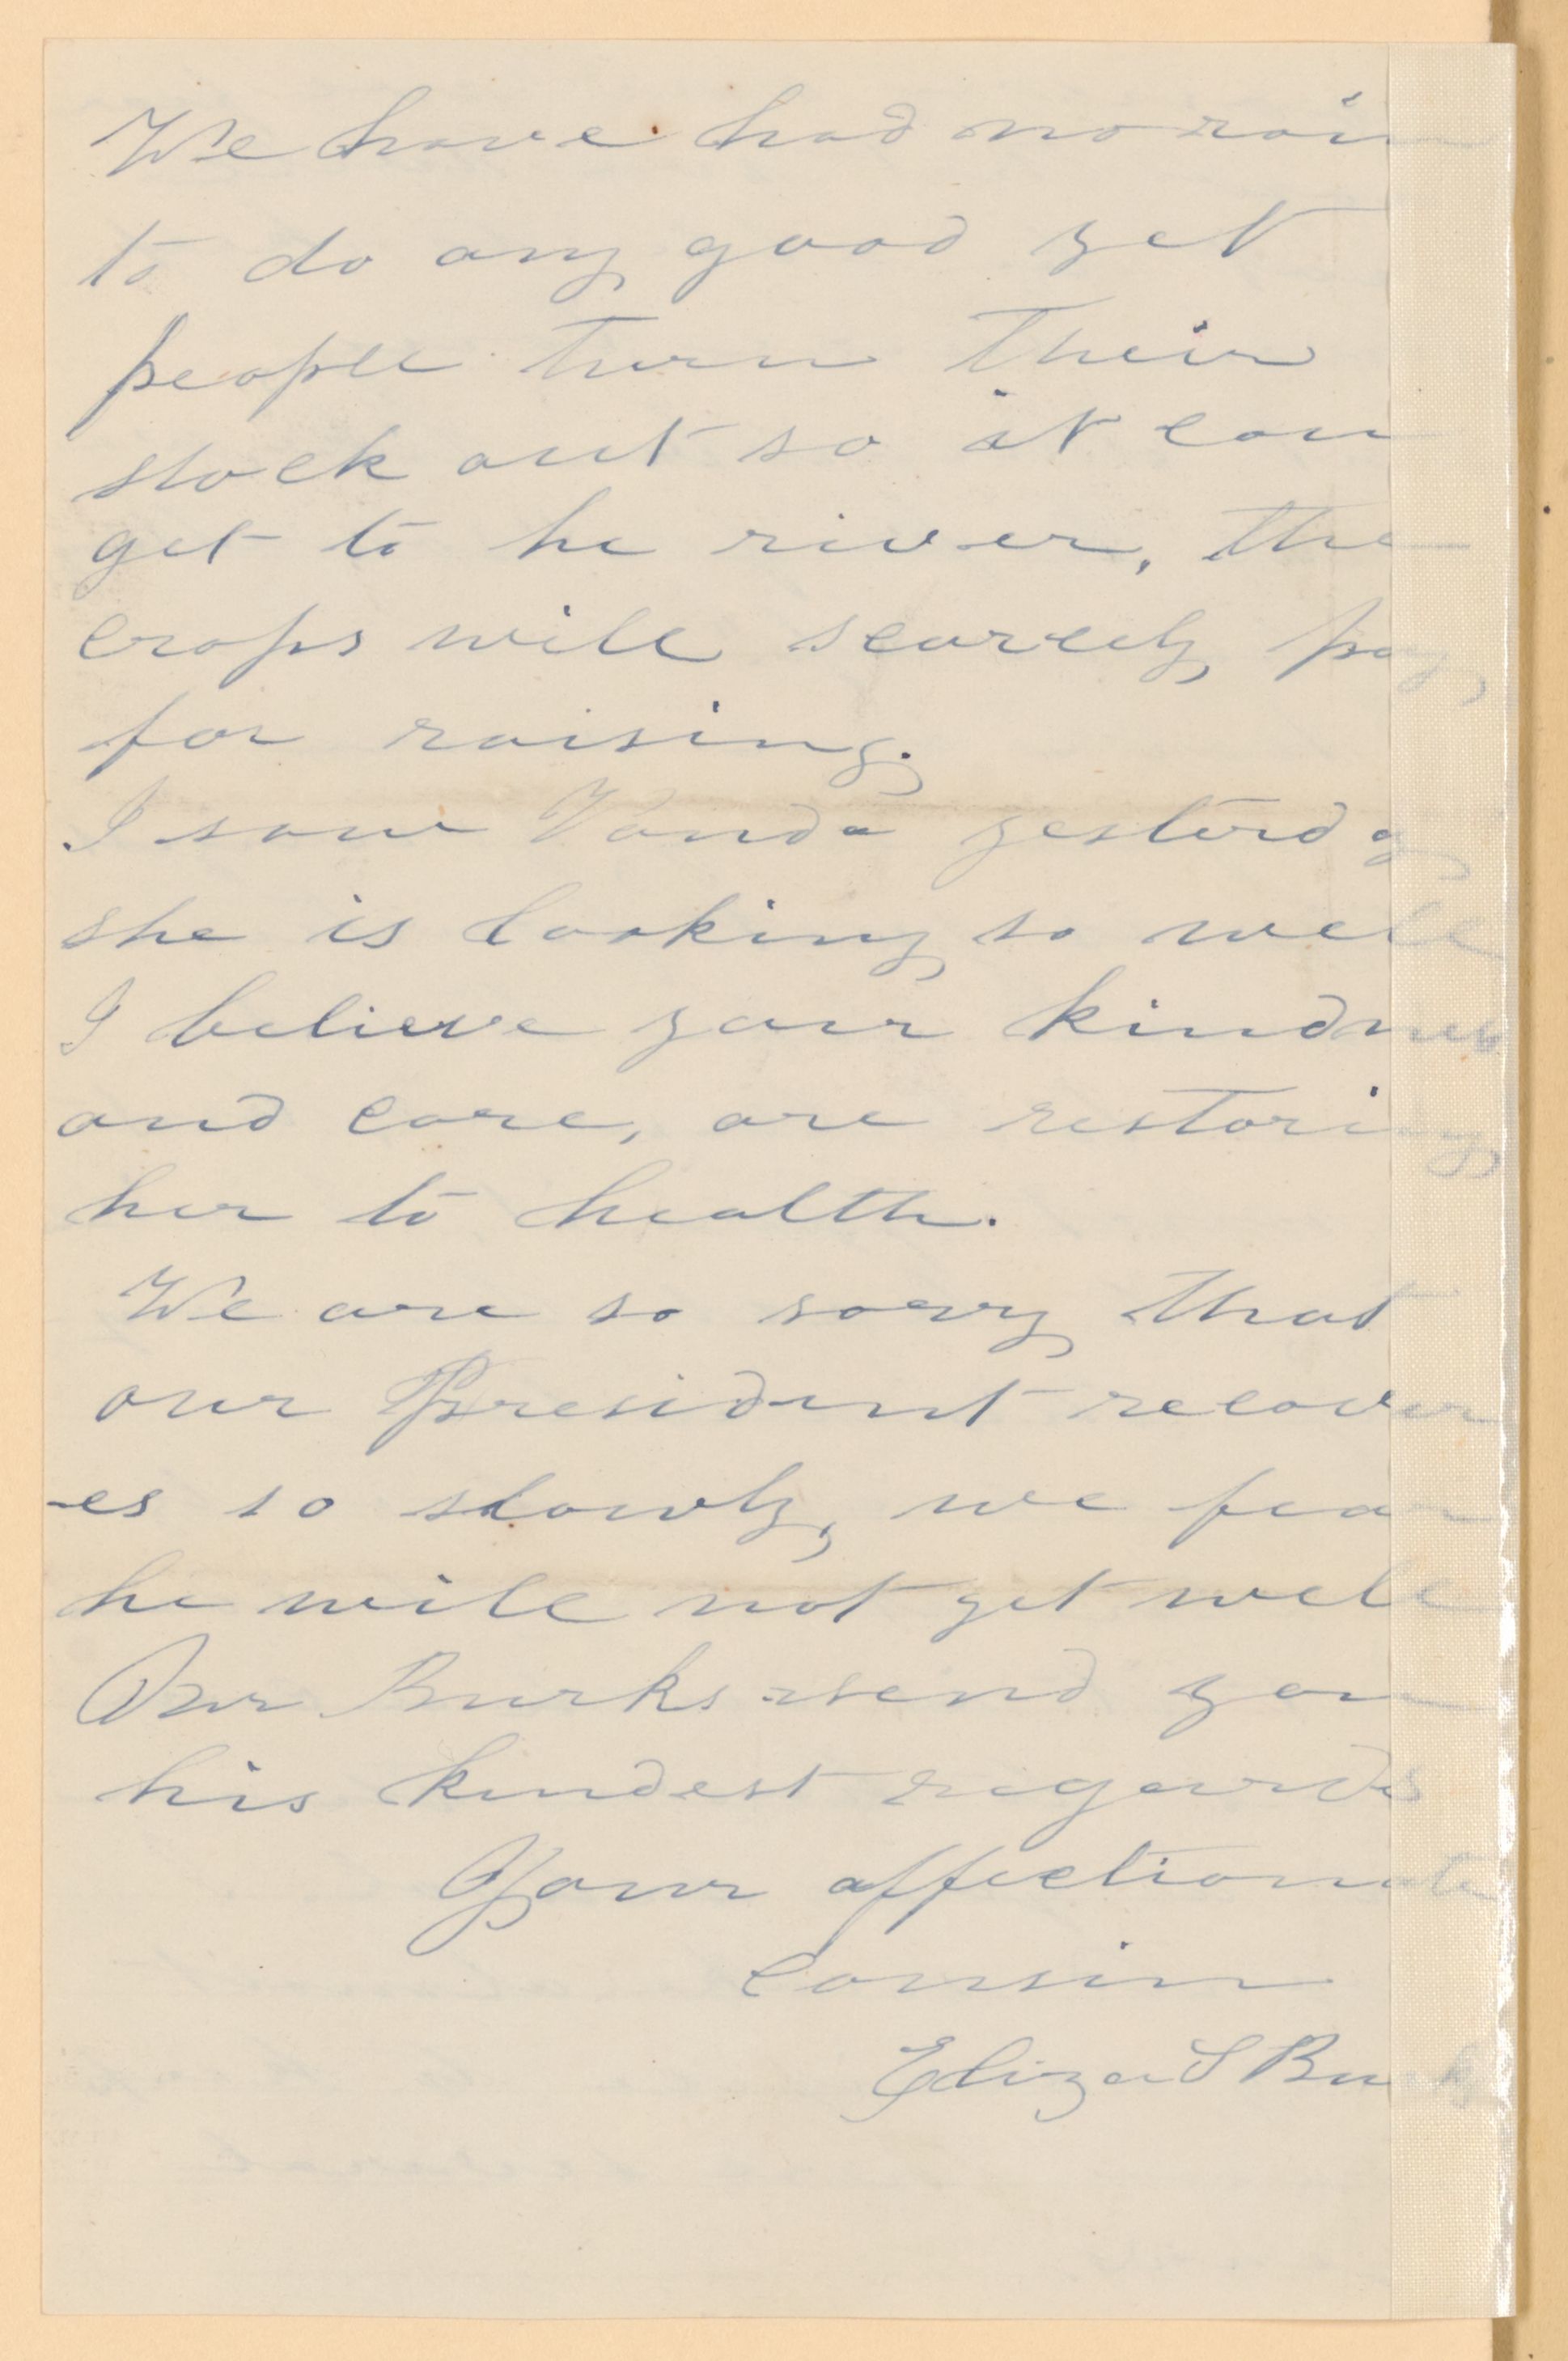 We have had no rain
to do any good yet
people turn their
stock out so it can
get to he river, the
crops will scarcely pay,
for raising.
I saw Vanda yesterday
she is looking so well
I believe your kindness
and care, are restoring
her to health.
We are so sorry that
our President recover
-es so slowly, we fear
he will not get well
Our Burks send you
his kindest regards
Your affectionate
Cousin
Eliza S Burks